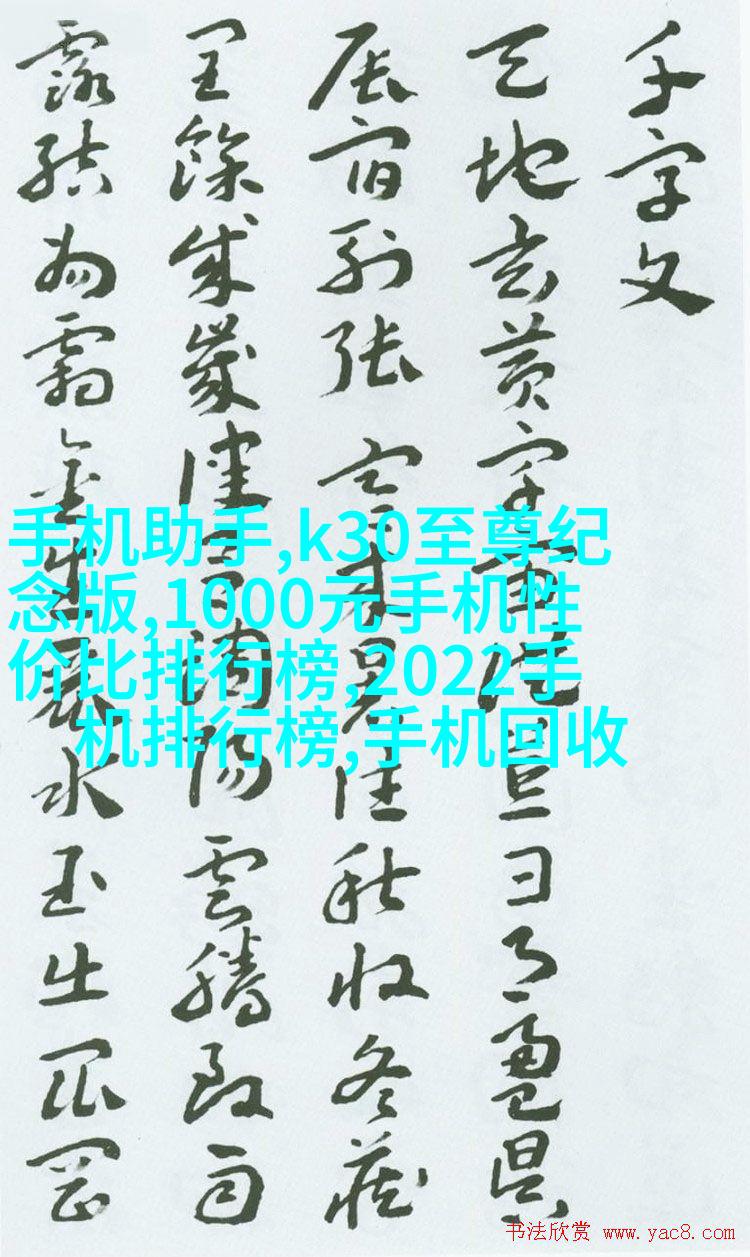 千字文
天地玄黄宇宙洪荒日月盈昃
辰宿列張寒来暑往秋收冬藏
閏餘成歲律吕調陽雲騰致雨
露結為霜金生麗水玉出崑岡
手机助手,k30至尊纪
念版,1000元手机性
价比排行榜,2022手
机排行榜,手机回收
书法欣赏 www.yac8.com